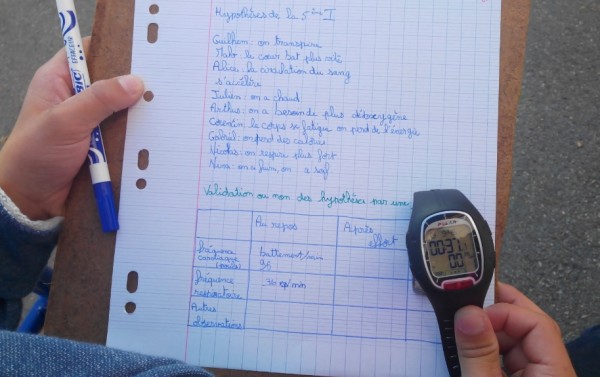 Hypothèses de la 5ème I
Guilhem: on transpire
Malo: le cœur bat plus vite
Alice: la circulation du sang
s'accélère
Julien: on a chaud
Arthus: on a besoin de plus d'oxygène
Corentin: le corps se fatigue on perd de l'énergie
Gabriel: on perd des calories
Nicolas: on respire plus fort
Nina: on a faim, on a soif
Validation ou non des hypothèses par une
Au repos
Après effort
fréquence
cardiaque (pouls)
battement/min
fréquence
respiratoire
36 rsp/min
Autres
observations
BIC
0037
00